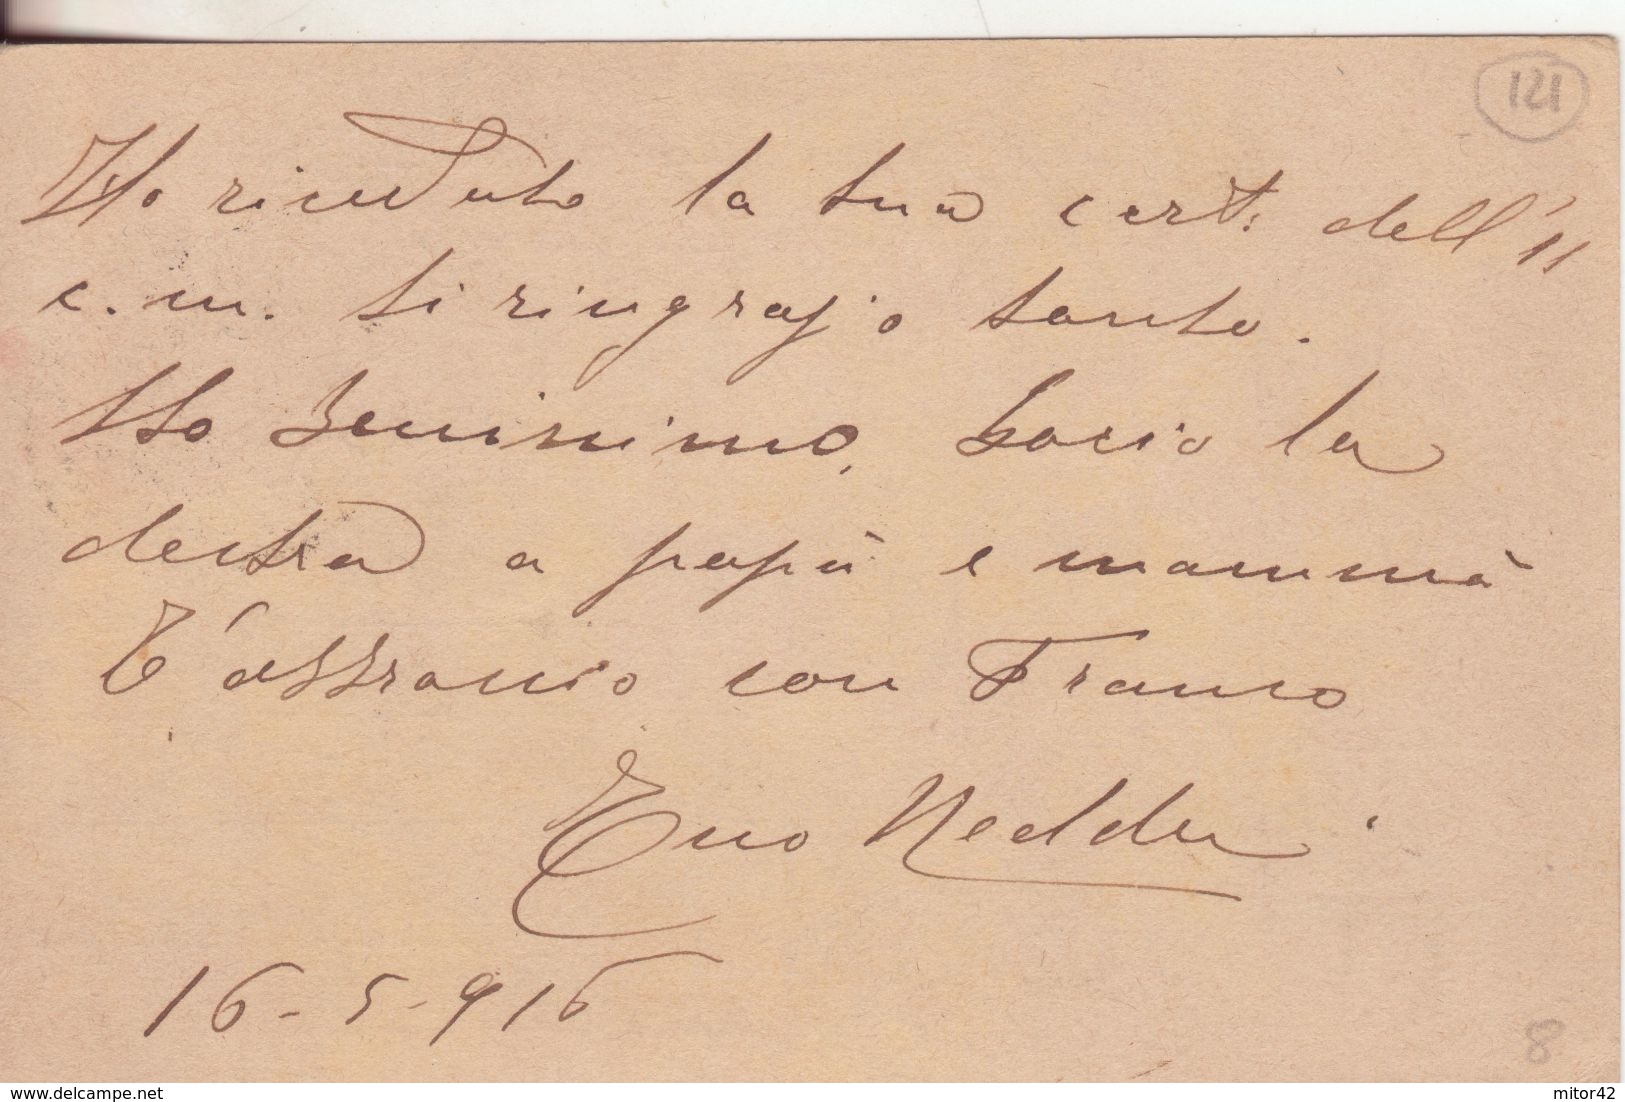 121
Ho ricevuto la tua cart. dell'11
c. m. ti ringrazio tanto.
Sto benissimo. Bacio la
destra a papà e mammà
T'abbraccio con Franco
Tuo Neddu
16-5-916
8
www.delcampe.net
mitor42